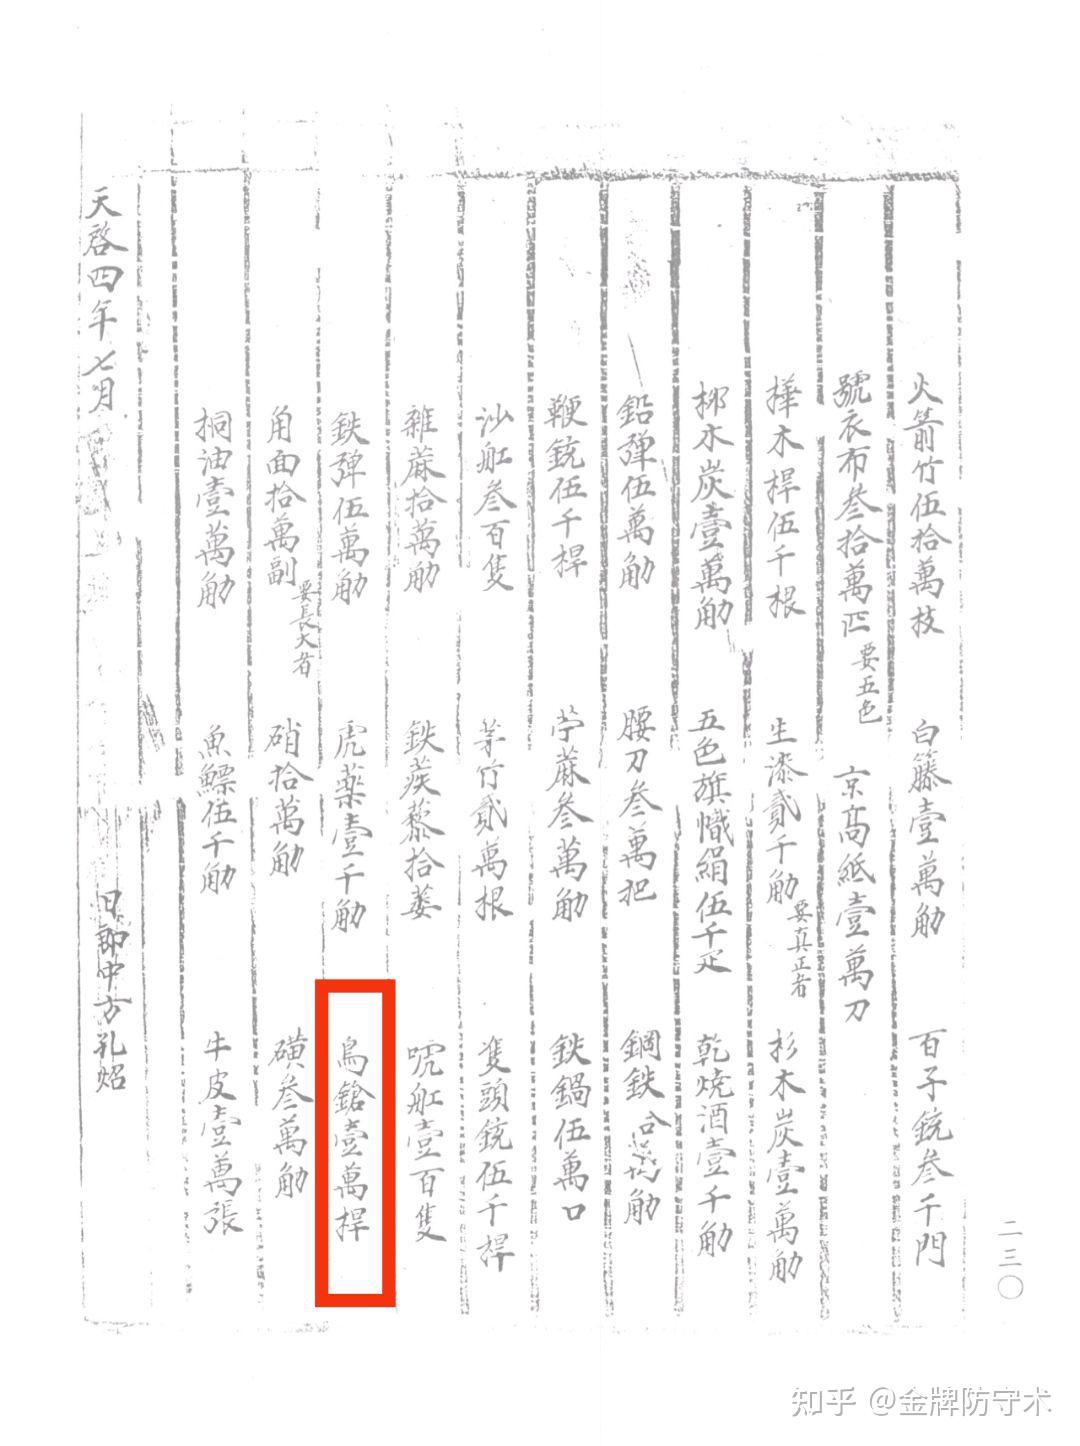 火箭竹伍拾萬枝 白籐壹萬觔 百子銃叁千門
號衣布叁拾萬疋 要五色 京高紙壹萬刀
樺木桿伍千根 生漆貳千觔 要真正者 杉木炭壹萬觔
柳木炭壹萬觔 五色旗幟絹伍千疋 乾燒酒壹千觔
鉛彈伍萬觔 腰刀叁萬把 鋼鉄 萬觔
鞭銃伍千桿 苧蔴叁萬觔 鉄鍋伍萬口
沙舡叁百隻 茅竹貳萬根 隻頭銃伍千桿
雜蔴拾萬觔 鉄蒺藜拾萬 唬舡壹百隻
鉄彈伍萬觔 虎藥壹千觔 鳥鎗壹萬桿
角面拾萬副 要長大者 硝拾萬觔 磺叁萬觔
桐油壹萬觔 魚鰾伍千觔 牛皮壹萬張
天啓四年七月 日郎中方孔炤
二三〇
知乎 @金牌防守术